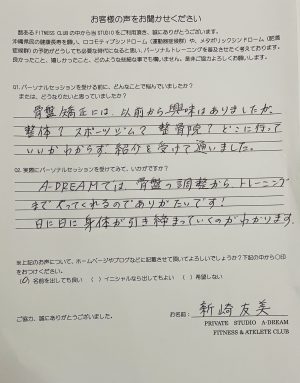 お客様の声をお聞かせください
数あるFITNESS CLUBの中から当STUDIOをご利用頂き、誠にありがとうございます。
沖縄県民の健康長寿を願い、ロコモティブシンドローム（運動器症候群）や、メタボリックシンドローム（肥満
症候群）の予防がどうしても必要な時代に突入すると思い、パーソナルトレーニングを普及させたく考えております。
良かったこと、嬉しかったこと、どのような些細な事でも構いません。是非ご協力よろしくお願いします。
Q1. パーソナルセッションを受ける前に、どんなことで悩んでいましたか？
または、どうなりたいと思っていましたか？
骨盤矯正には、以前から興味はありましたが、
整体？スポーツジム？整骨院？どこに行って
いいかわからず紹介を受けて通いました。
Q2. 実際にパーソナルセッションを受けてみて、いかがですか？
A-DREAMでは、骨盤の調整からトレーニング
まで行ってくれるのでありがたいです！
日に日に身体が引き締まっていくのがわかります。
※上記のお声について、ホームページやブログなどに記載させて頂いてよろしいでしょうか？下記の中から〇印
をおつけください。
名前を出しても良い （ ）イニシャルなら出してもよい （ ）希望しない
ご協力、誠にありがとうございました。
お名前： 新崎友美
PRIVATE STUDIO A-DREAM
FITNESS & ATELETE CLUB